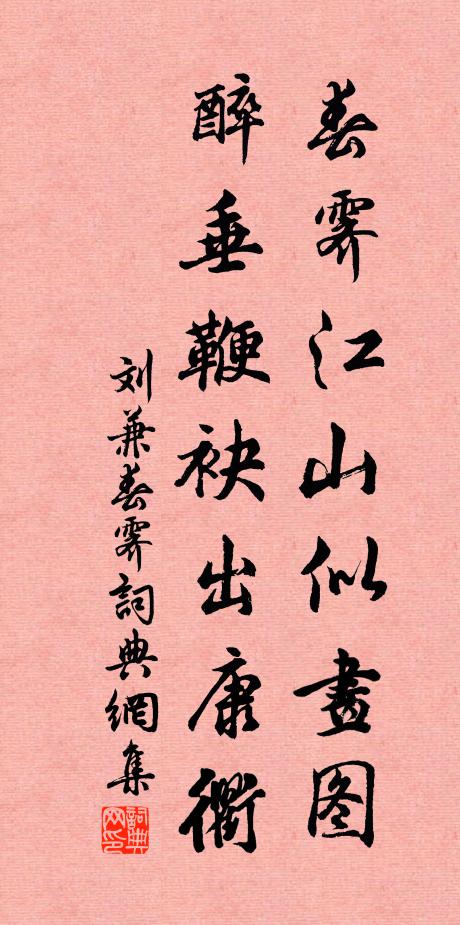 春霁江山似畫图
醉垂鞭袂出康衢
刘兼春霁詞典網集
詞典网印